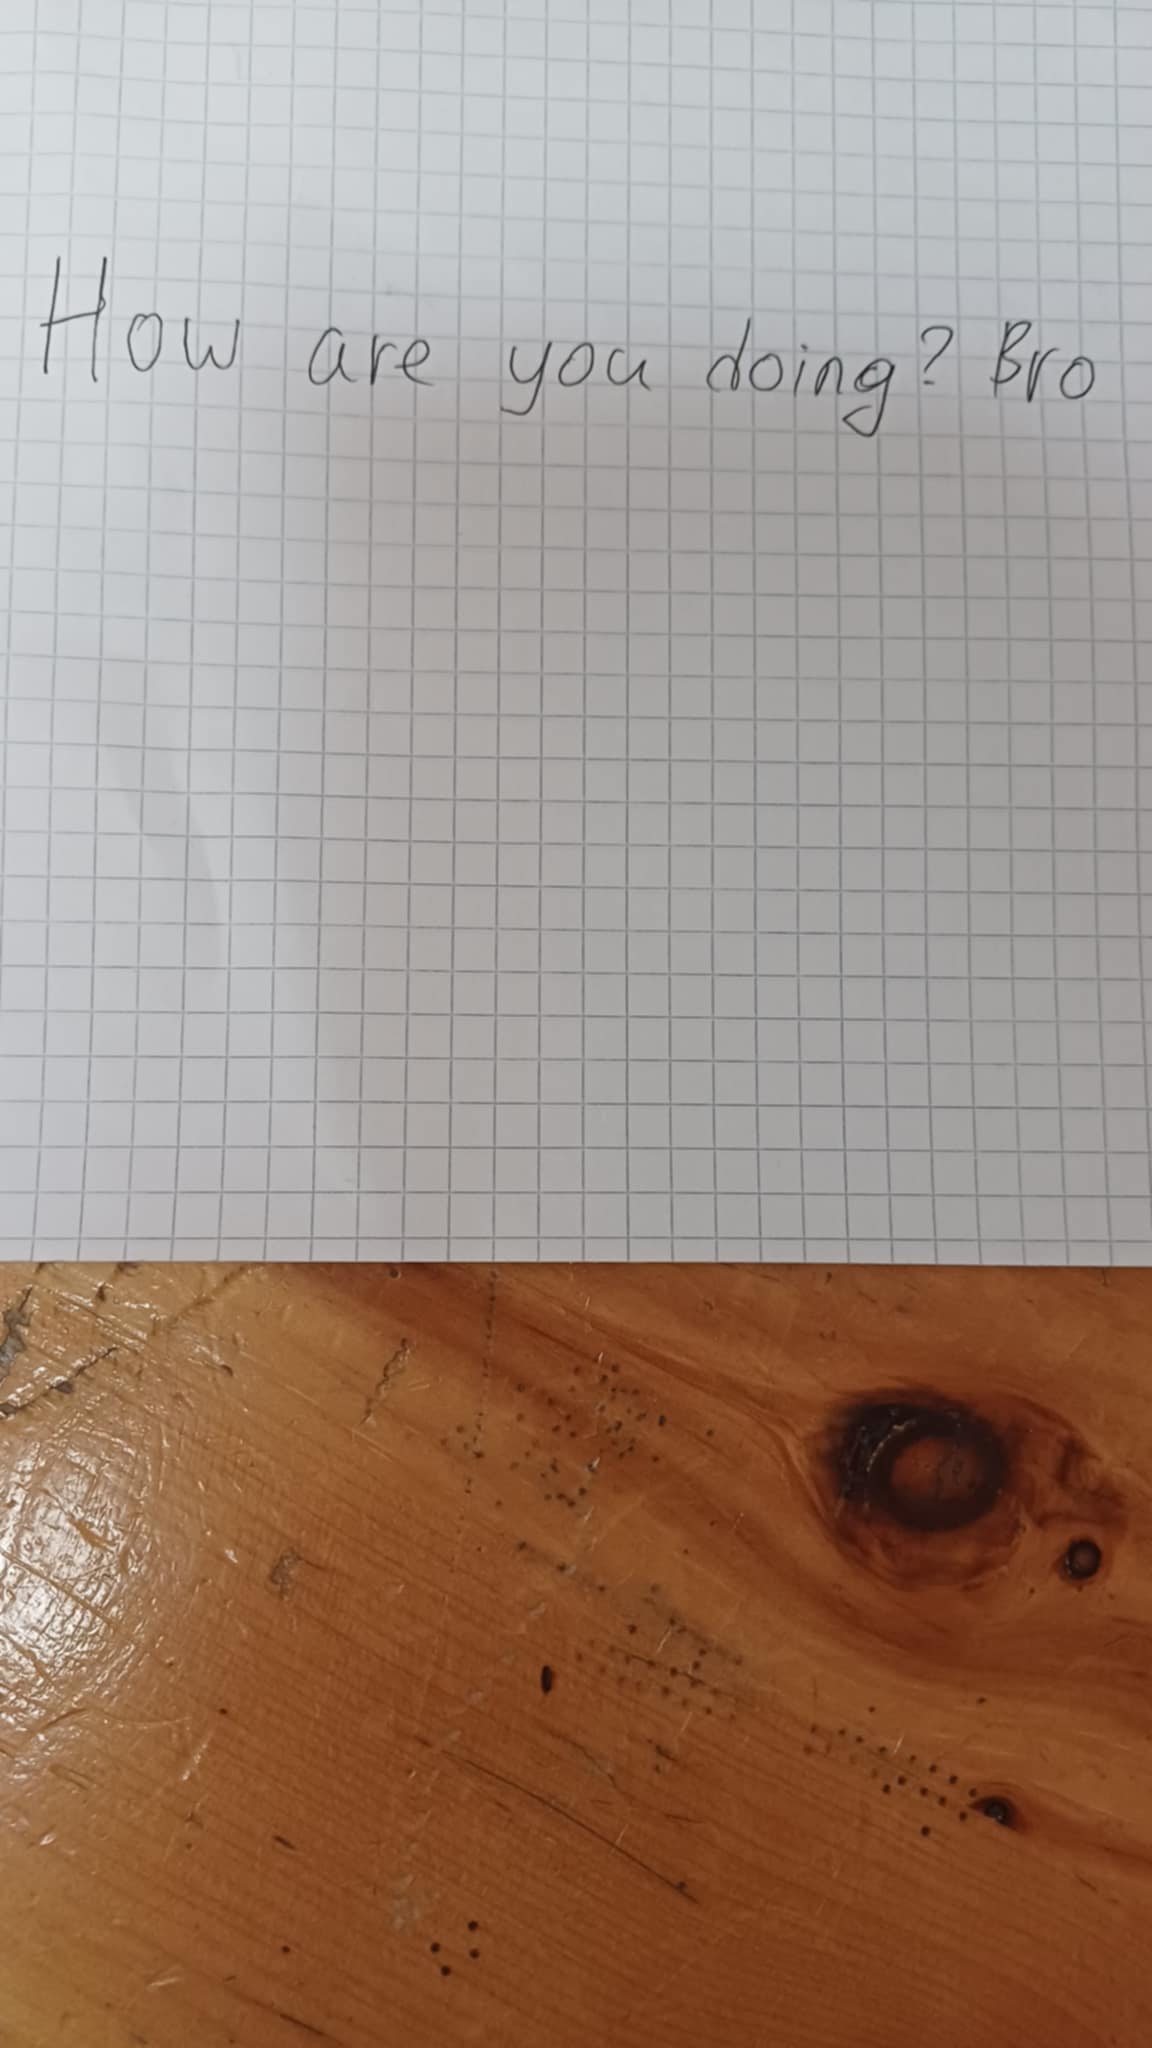 How are you doing? Bro